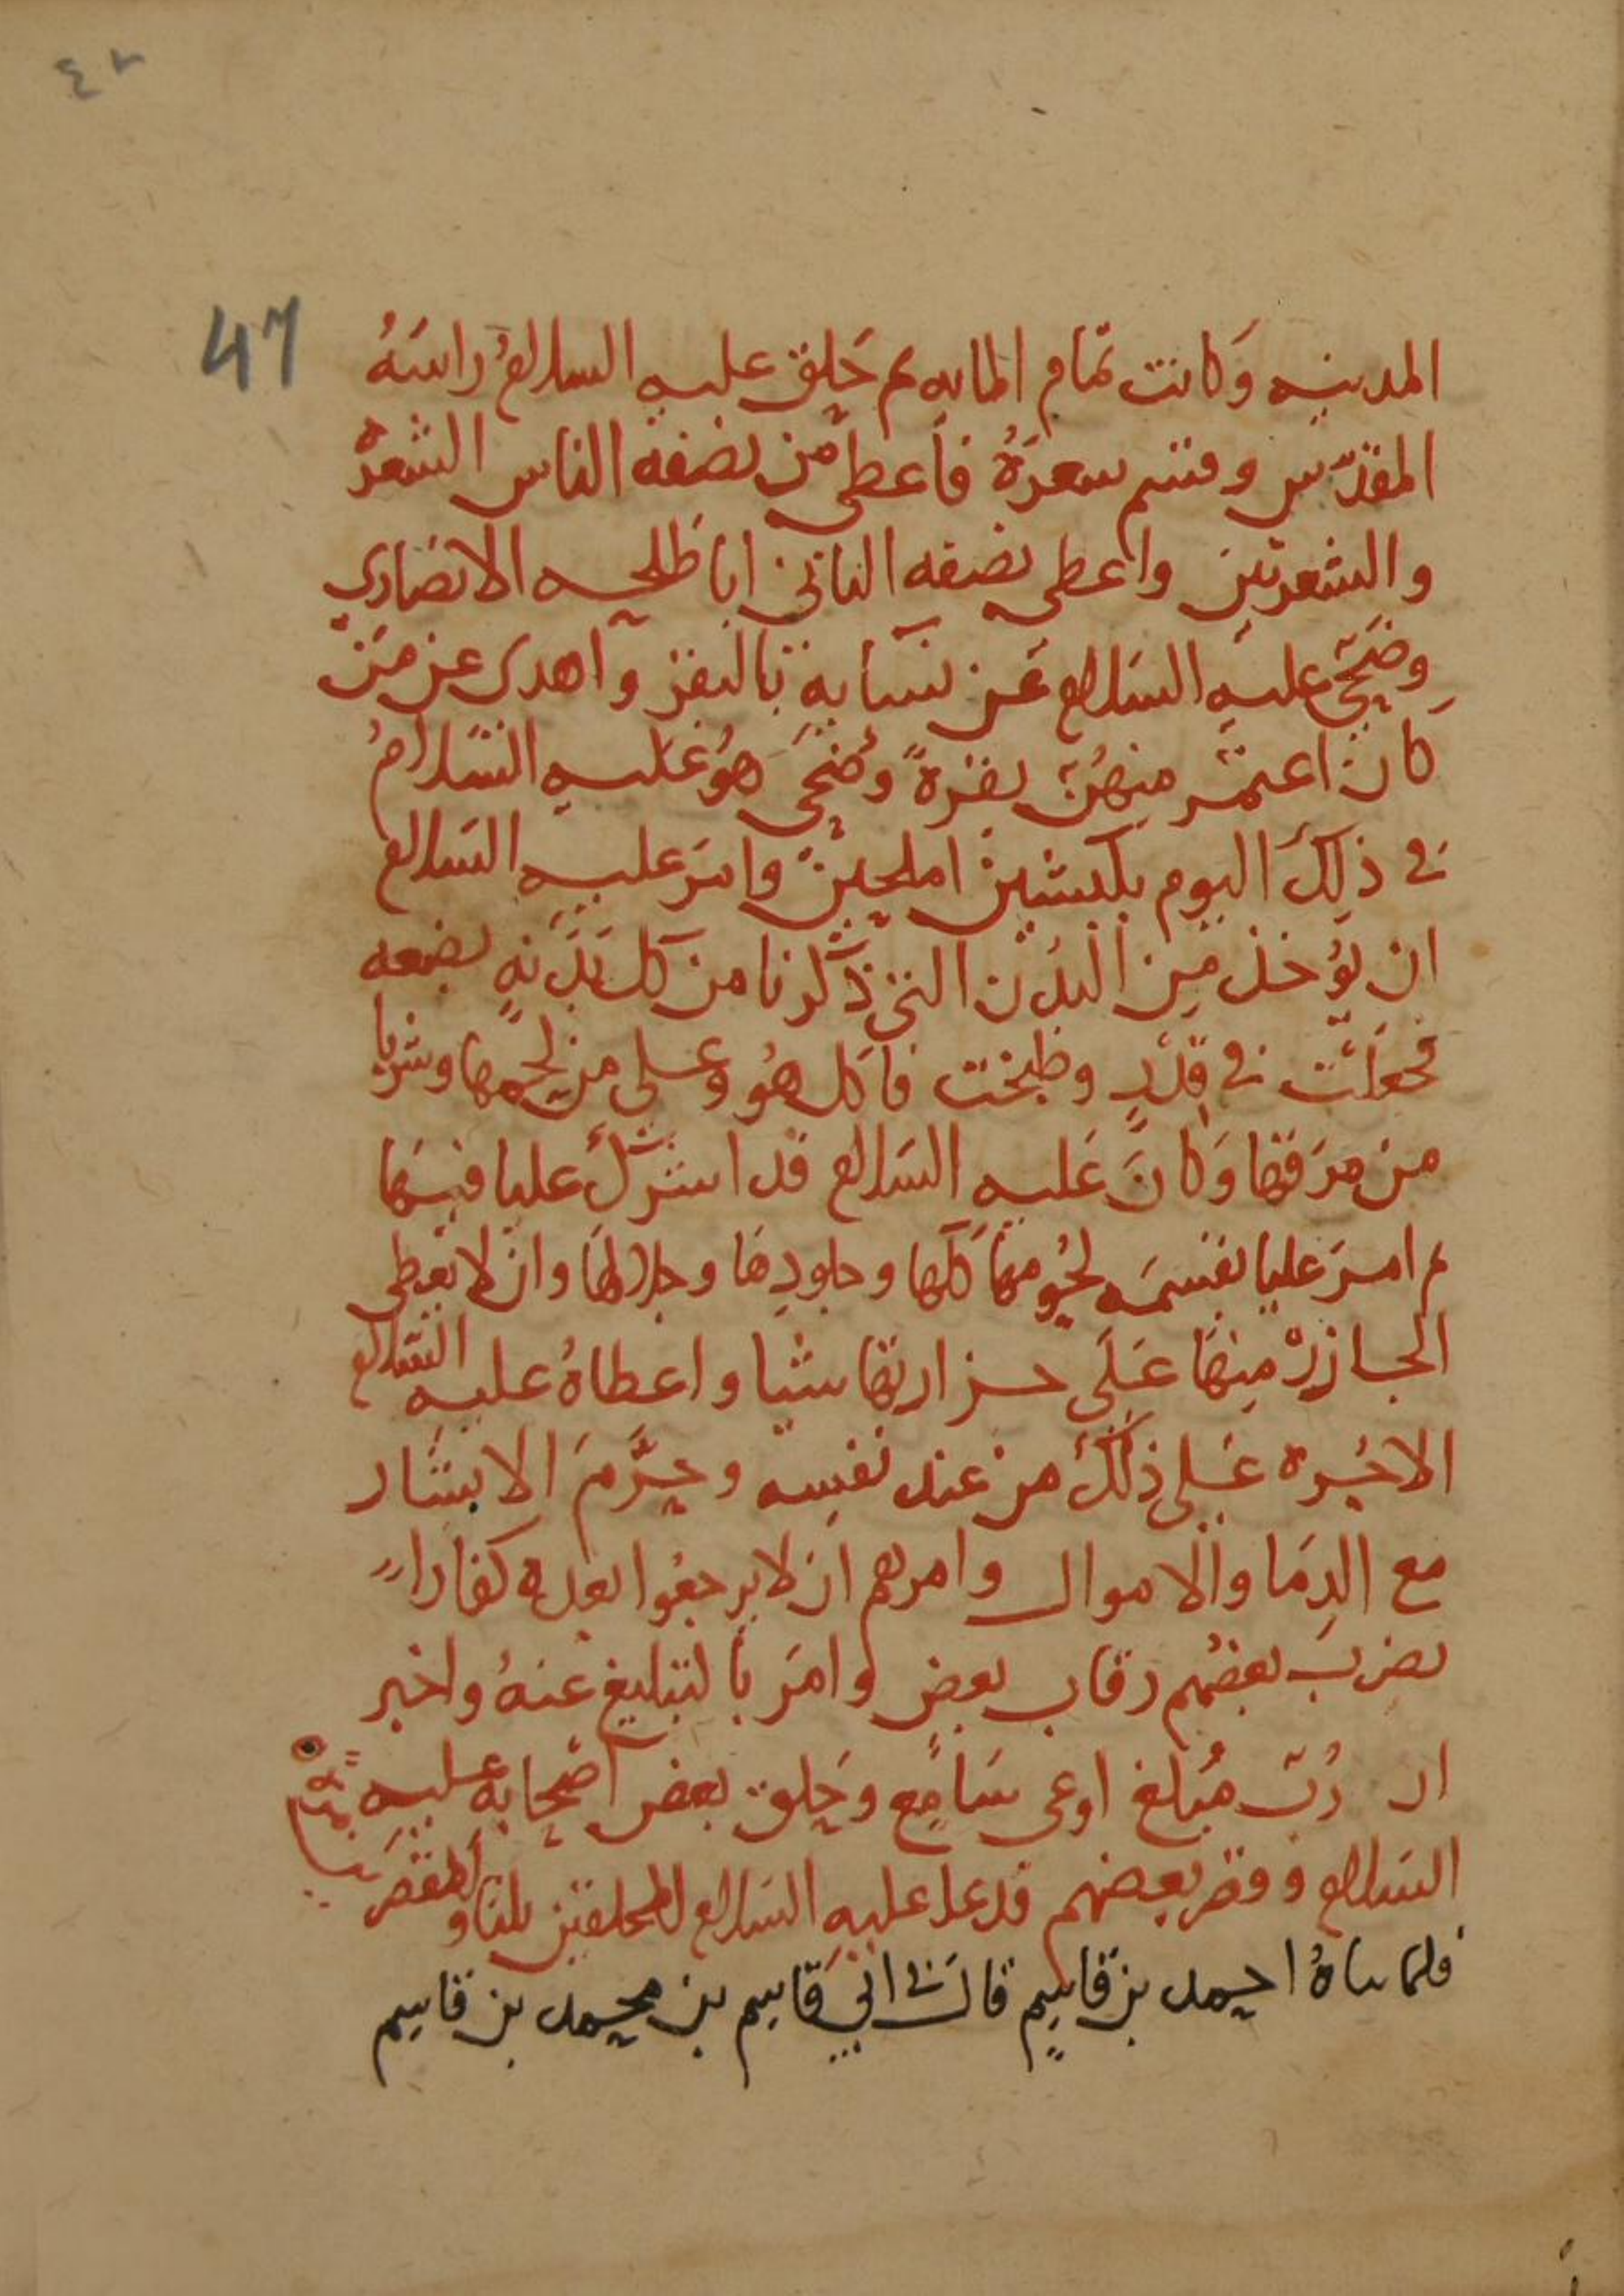 ٤٢
47
المدينه وَكانت تمام المايه ثم حَلق عليه السلامُ راسَهُ
المقدّس وقسم شعرَهُ فأعطى من نصفه الناس الشعره
والشعرتين واعطى نصفه الثاني ابا طلحه الانصاري
وضَحّى عليه السَلام عَن نسَايهِ بالبقر وأهدى عن مَنْ
كان اعتمر منهُنّ بقرةً وضَحّى هوُ عَليه السَّلامُ
في ذلِكَ اليوم بكبشين املحين وامَرَ عليه السَلام
ان يُوخذ مِن البُدْن التي ذَكرنا من كل بَدَنهٍ بضعه
فجعَلَتْ في قِدْرٍ وطبخت فأكل هُو وعلي من لحمها وشربا
من مرَقها وَكانَ عَليه السَلام قد اشترَكَ عليا فيهَا
ثم امرَ عليا بقسمَه لحُومهَا كلها وجلودِهَا وجِلالهَا وان لا يعطى
الجازِرْ مِنهَا عَلَى جزارتها شيا واعطاهُ عليه السَلام
الاجُره عَلى ذلكَ من عند نفسِه وحَرَّمَ الابشار
مع الدِمَا والاموال وامرهم ان لا يرجعُوا بعده كفاراً
يضربَ بعضُهم رقاب بعضٍ وامَر بالتبليغ عنهُ واخبر
ان رُبّ مُبلغٍ اوعى سَامِع وحَلق بعض اصحابهِ عليه
السَلام وقصر بعضهم فدعا عليه السَلام للمحلقين ثلثا وللمقصرين
احمد بن قاسِم قالَ في ابي قاسِم بن محمد بن قاسِم